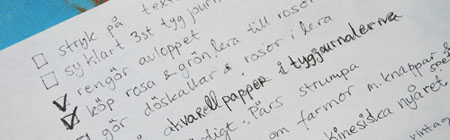 stryk på text
sy klart 3st tygjourn
rengör avloppet
köp rosa & grön lera till rosor
gör döskallar & rosor i lera
akvarellpapper i tygjournalerna
digt: Pärs strumpa
om farmor m. knappar &
kinesiska nyåret